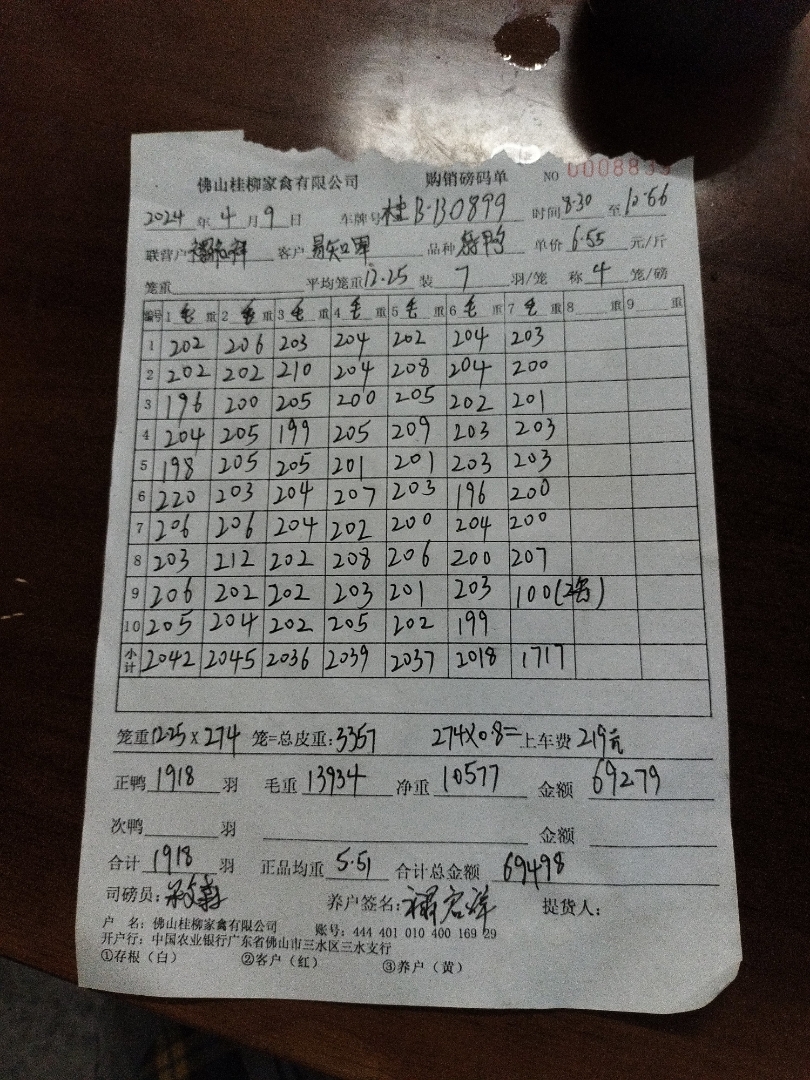 佛山桂柳家禽有限公司 购销磅码单 NO 000883
2024 年 4 月 9 日 车牌号 桂B·B0899 时间 8:30 至 12:56
联营户 客户 品种 鸭 单价 6.55 元/斤
笼重 平均笼重 12.25 装 7 羽/笼 称 4 笼/磅
编号 1 毛 重 2 毛 重 3 毛 重 4 毛 重 5 毛 重 6 毛 重 7 毛 重 8 重 9 重
1 202 206 203 204 202 204 203
2 202 202 210 204 208 204 200
3 196 200 205 200 205 202 201
4 204 205 199 205 209 203 203
5 198 205 205 201 201 203 203
6 220 203 204 207 203 196 200
7 206 206 204 202 200 204 200
8 203 212 202 208 206 200 207
9 206 202 202 203 201 203 100(2笼)
10 205 204 202 205 202 199
小计 2042 2045 2036 2039 2037 2018 1717
笼重 12.25 x 274 笼=总皮重: 3357 274x0.8= 上车费 219元
正鸭 1918 羽 毛重 13934 净重 10577 金额 69279
次鸭 羽 金额
合计 1918 羽 正品均重 5.51 合计总金额 69498
司磅员: 养户签名: 提货人:
户 名: 佛山桂柳家禽有限公司 账号: 444 401 010 400 169 29
开户行: 中国农业银行广东省佛山市三水区三水支行
①存根(白) ②客户(红) ③养户(黄)